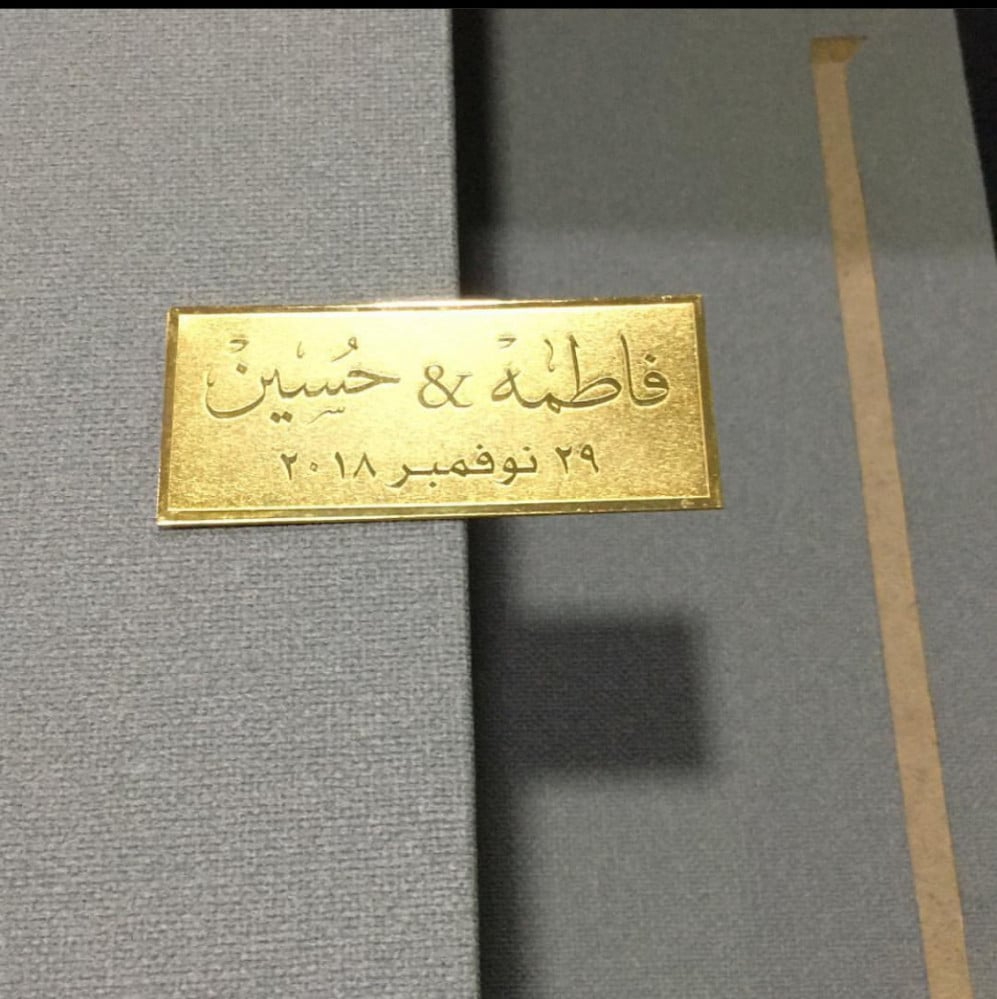 فاطمه & حُسين
٢٩ نوفمبر ٢٠١٨